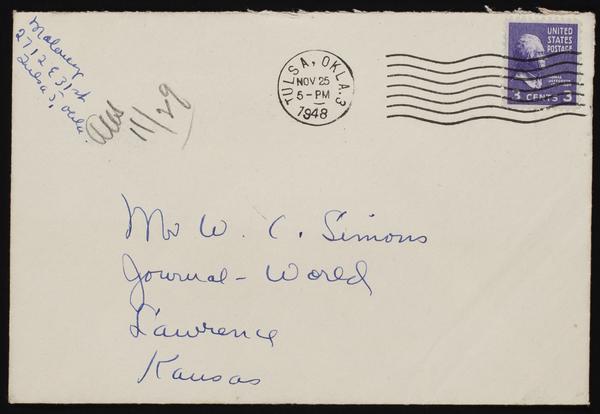 Maloney
2712 E 31st
Tulsa 5, Okla.
11/29
TULSA, OKLA. 3
NOV 25
5-PM
1948
UNITED
STATES
POSTAGE
3 CENTS 3
Mr W. C. Simons
Journal-World
Lawrence
Kansas